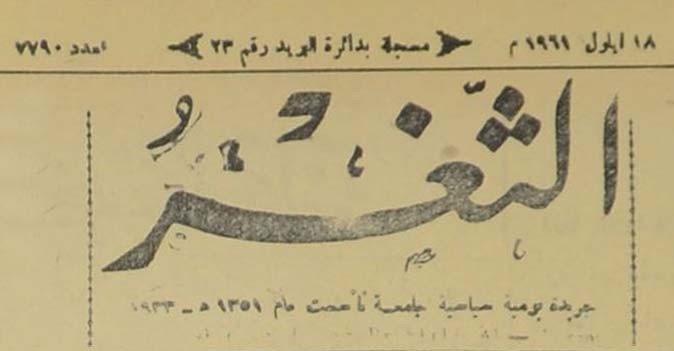 ١٨ ايلول ١٩٦١ م مسجلة بدائرة البريد رقم ٢٣ العدد ٧٧٩٠
الثَّغْرُ
جريدة يومية سياسية جامعة تأسست عام ١٣٥١ هـ - ١٩٣٣